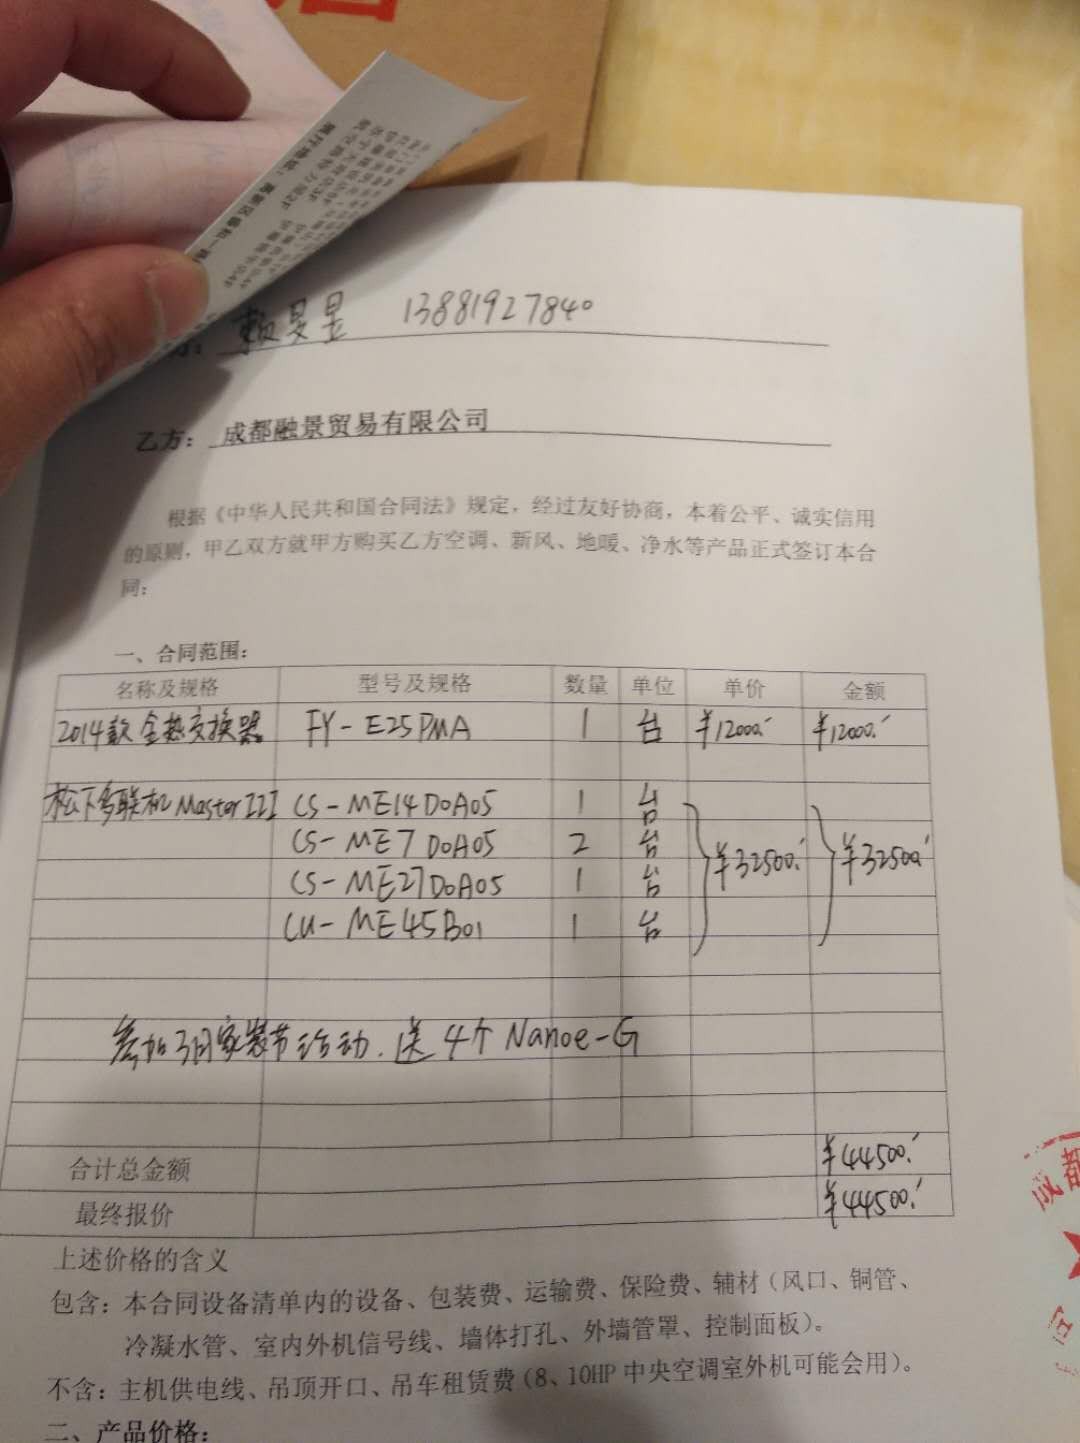 展厅地址：高新区
方： 赖旻昱 13881927840
乙方： 成都融景贸易有限公司
根据《中华人民共和国合同法》规定，经过友好协商，本着公平、诚实信用
的原则，甲乙双方就甲方购买乙方空调、新风、地暖、净水等产品正式签订本合
同：
一、合同范围：
名称及规格 型号及规格 数量 单位 单价 金额
2014款全热交换器 FY-E25PMA 1 台 ¥12000.- ¥12000.-
松下多联机MasterIII CS-ME14D0A05 1 台
CS-ME7D0A05 2 台 ¥32500.- ¥32500.-
CS-ME27D0A05 1 台
CU-ME45B01 1 台
参加3月家装节活动.送4个Nanoe-G
合计总金额 ¥44500.-
最终报价 ¥44500.-
上述价格的含义
包含：本合同设备清单内的设备、包装费、运输费、保险费、辅材（风口、铜管、
冷凝水管、室内外机信号线、墙体打孔、外墙管罩、控制面板）。
不含：主机供电线、吊顶开口、吊车租赁费（8、10HP中央空调室外机可能会用）。
二、产品价格：
成都